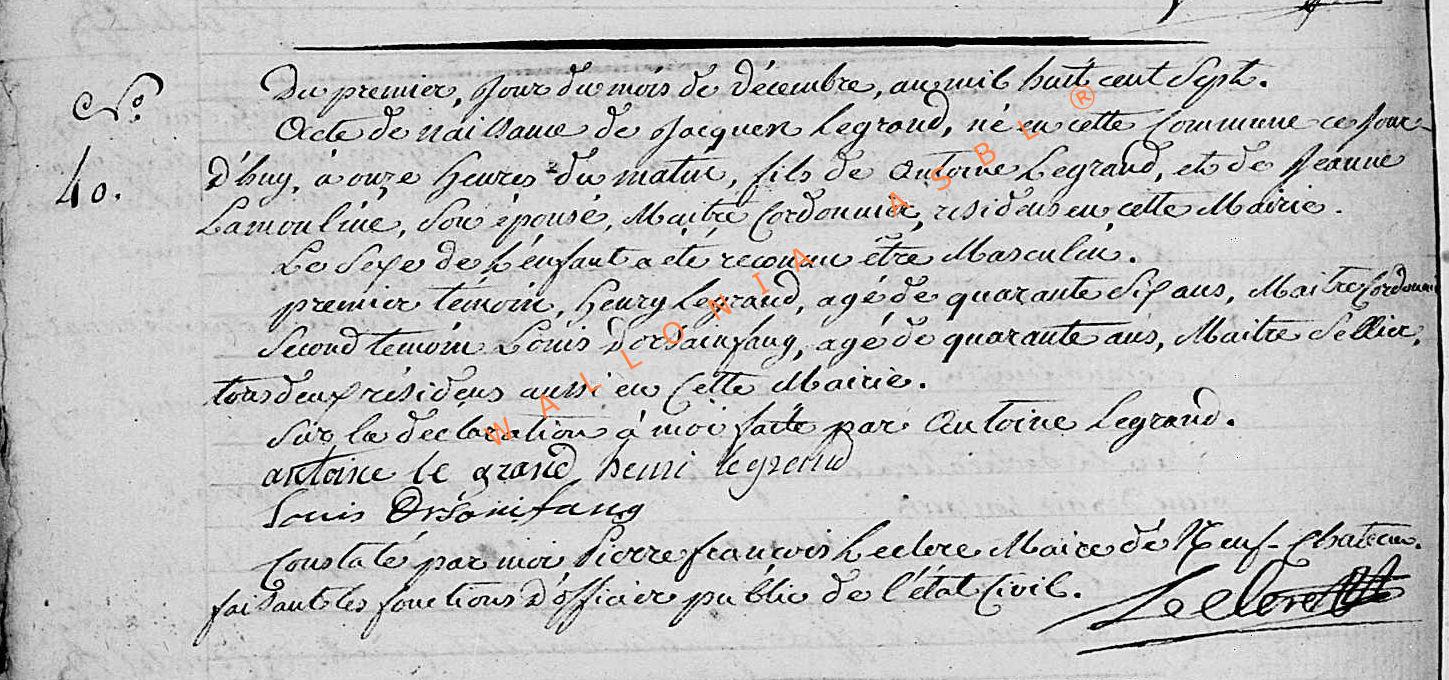 Du premier, Jour du mois de Décembre, an mil huit cent Sept.
No.
Acte de naissance de Jacques Legrand, né en cette Commune ce Jour
40.
d'huy, à onze heures du matin, fils de Antoine Legrand, et de Jeanne
Lamouline, Son épouse, Maitre Cordonnier, residens en cette Mairie.
Le Sexe de L'énfant a été reconnu être Masculin.
premier témoin, Henry Legrand, agé de quarante Six ans, Maitre Cordonnier
Second témoin Louis Dorsainfang, agé de quarante ans, Maitre Sellier,
tous deux résidens aussi en Cette Mairie.
Sur la déclaration à moi faite par Antoine Legrand.
antoine le grand henri legrand
Louis Orsainfang
Constaté par moi Pierre françois Leclerc Maire de Neuf-Chateau.
faisant les fonctions d'officier public de l'état Civil.
Leclerc
WALLONIA ASBL ®